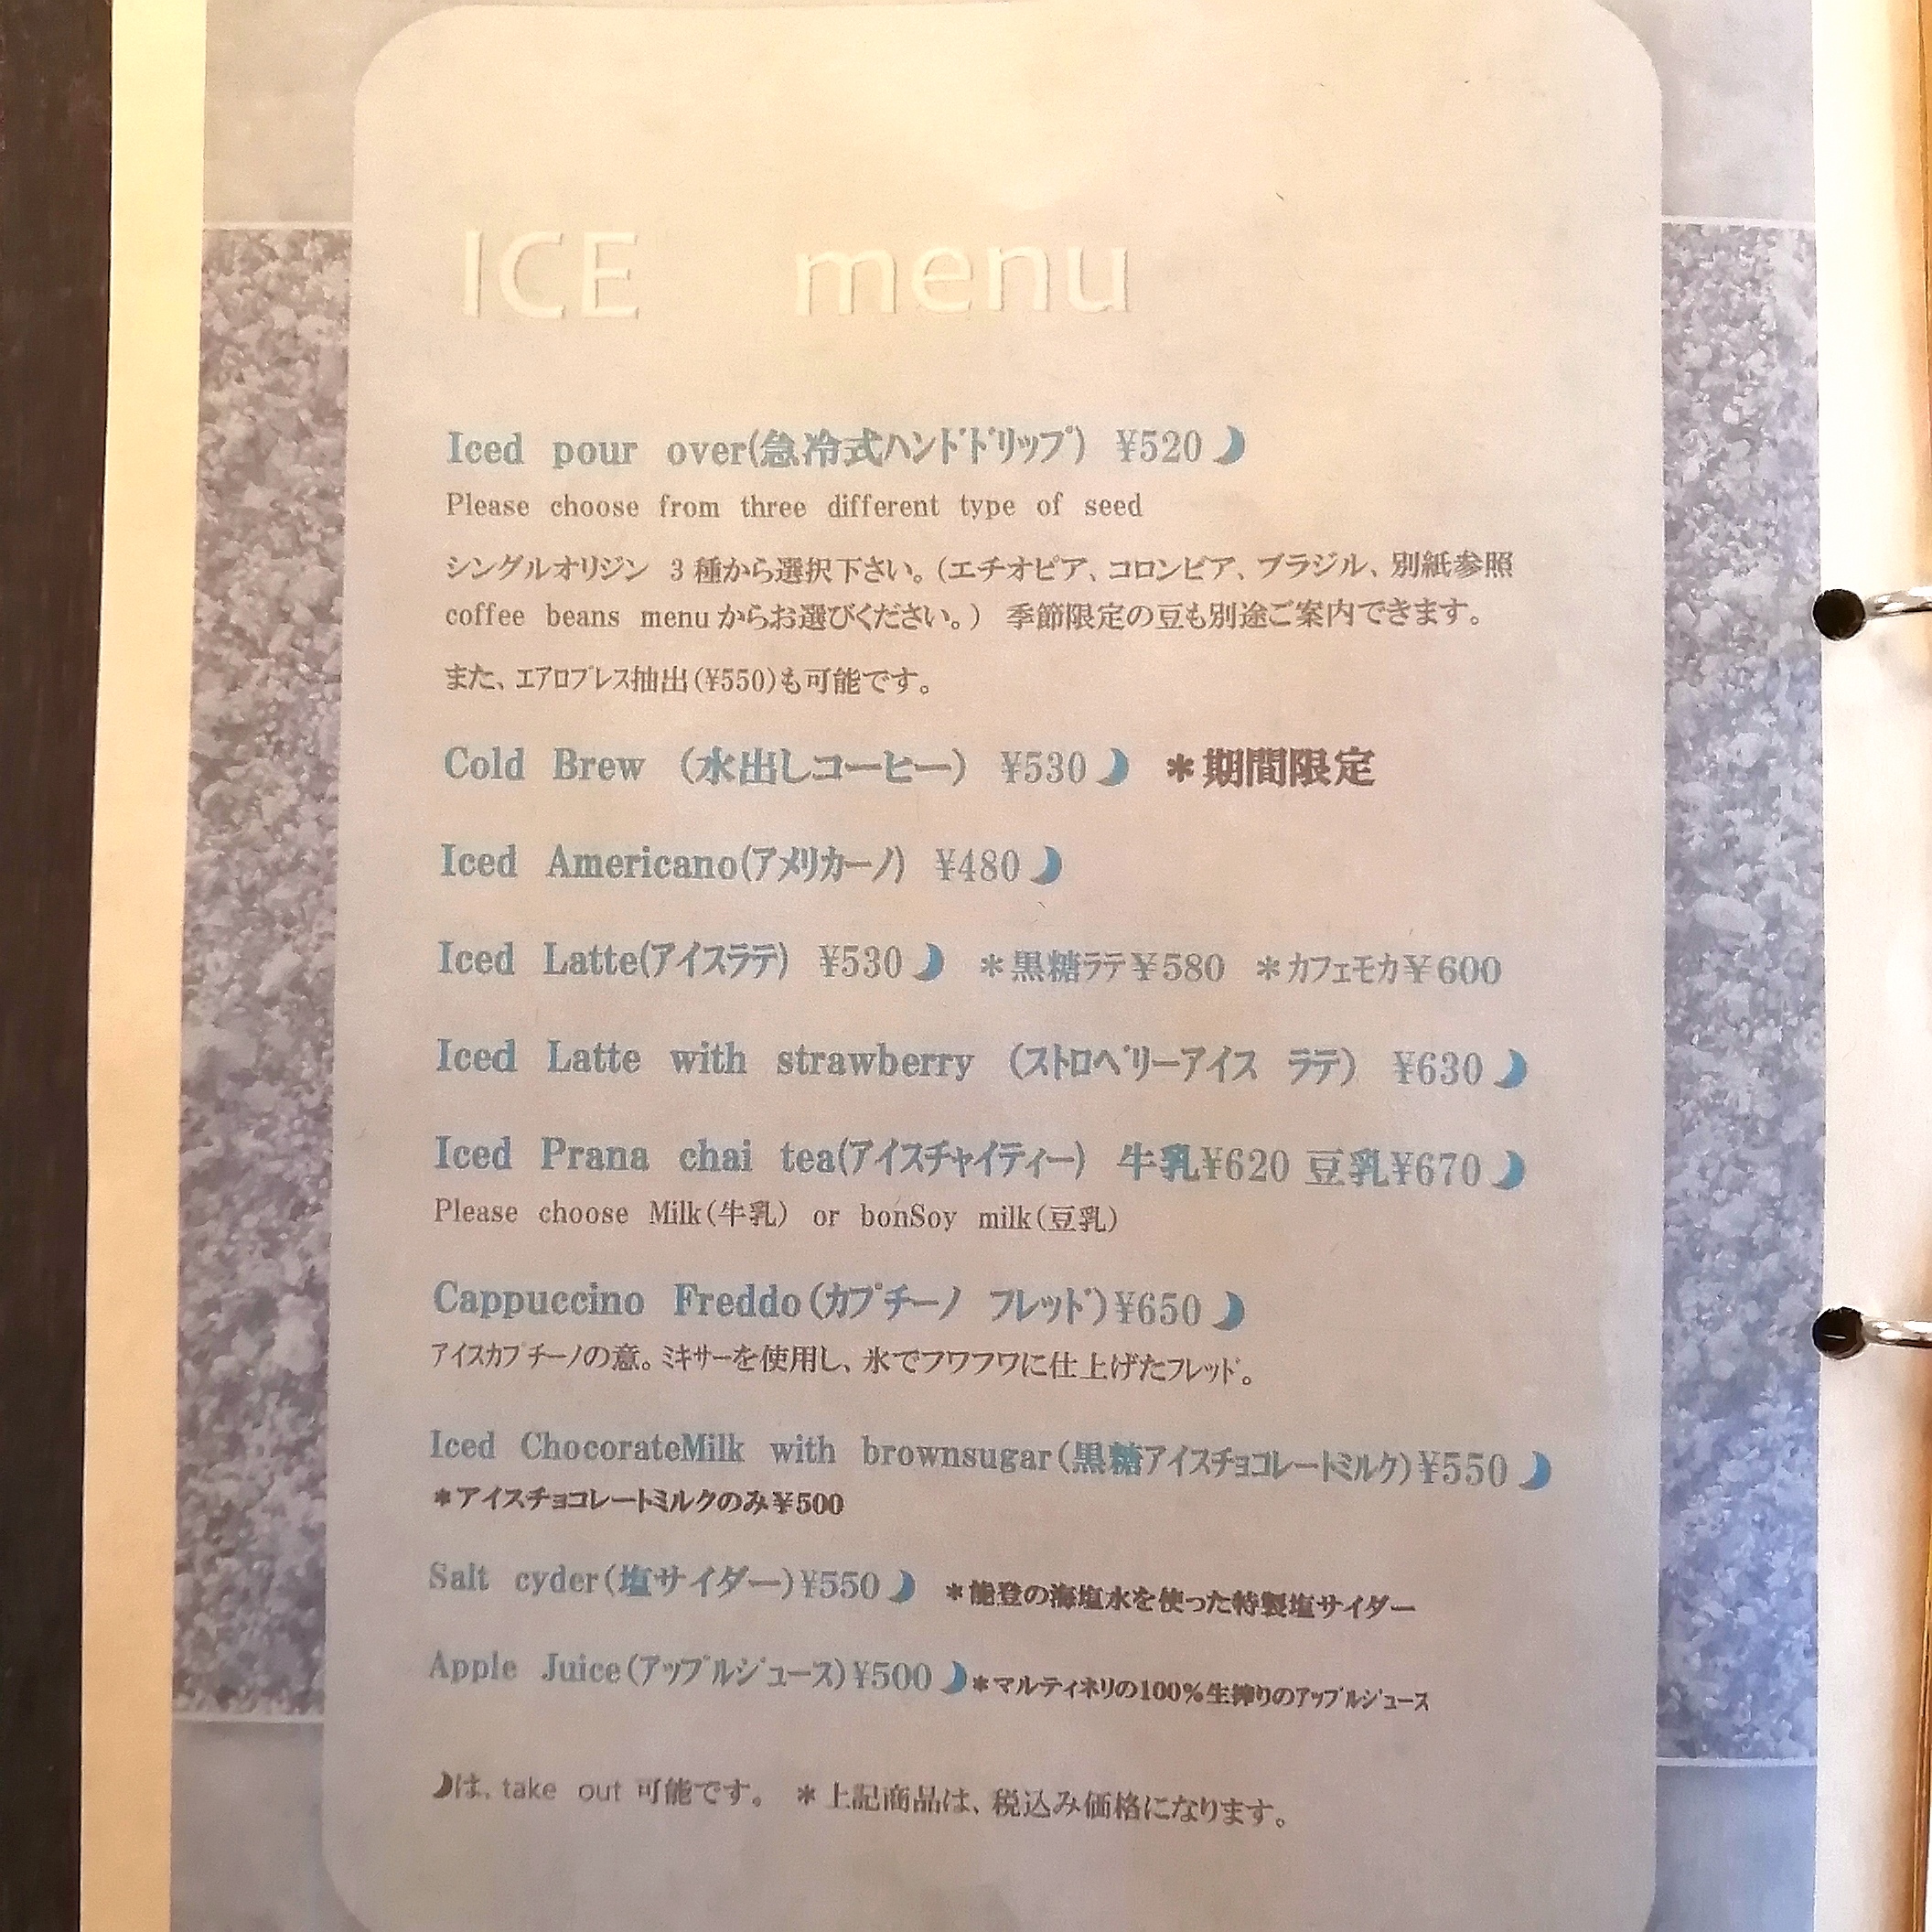 ICE menu
Iced pour over(急冷式ハンドドリップ) ¥520
Please choose from three different type of seed
シングルオリジン 3種から選択下さい。(エチオピア、コロンビア、ブラジル、別紙参照
coffee beans menuからお選びください。) 季節限定の豆も別途ご案内できます。
また、エアロプレス抽出(¥550)も可能です。
Cold Brew (水出しコーヒー) ¥530 *期間限定
Iced Americano(アメリカーノ) ¥480
Iced Latte(アイスラテ) ¥530 *黒糖ラテ¥580 *カフェモカ¥600
Iced Latte with strawberry (ストロベリーアイス ラテ) ¥630
Iced Prana chai tea(アイスチャイティー) 牛乳¥620 豆乳¥670
Please choose Milk(牛乳) or bonSoy milk(豆乳)
Cappuccino Freddo(カプチーノ フレッド)¥650
アイスカプチーノの意。ミキサーを使用し、氷でフワフワに仕上げたフレッド。
Iced ChocorateMilk with brownsugar(黒糖アイスチョコレートミルク)¥550
*アイスチョコレートミルクのみ¥500
Salt cyder(塩サイダー)¥550 *能登の海塩水を使った特製塩サイダー
Apple Juice(アップルジュース)¥500 *マルティネリの100%生搾りのアップルジュース
は、take out 可能です。 *上記商品は、税込み価格になります。